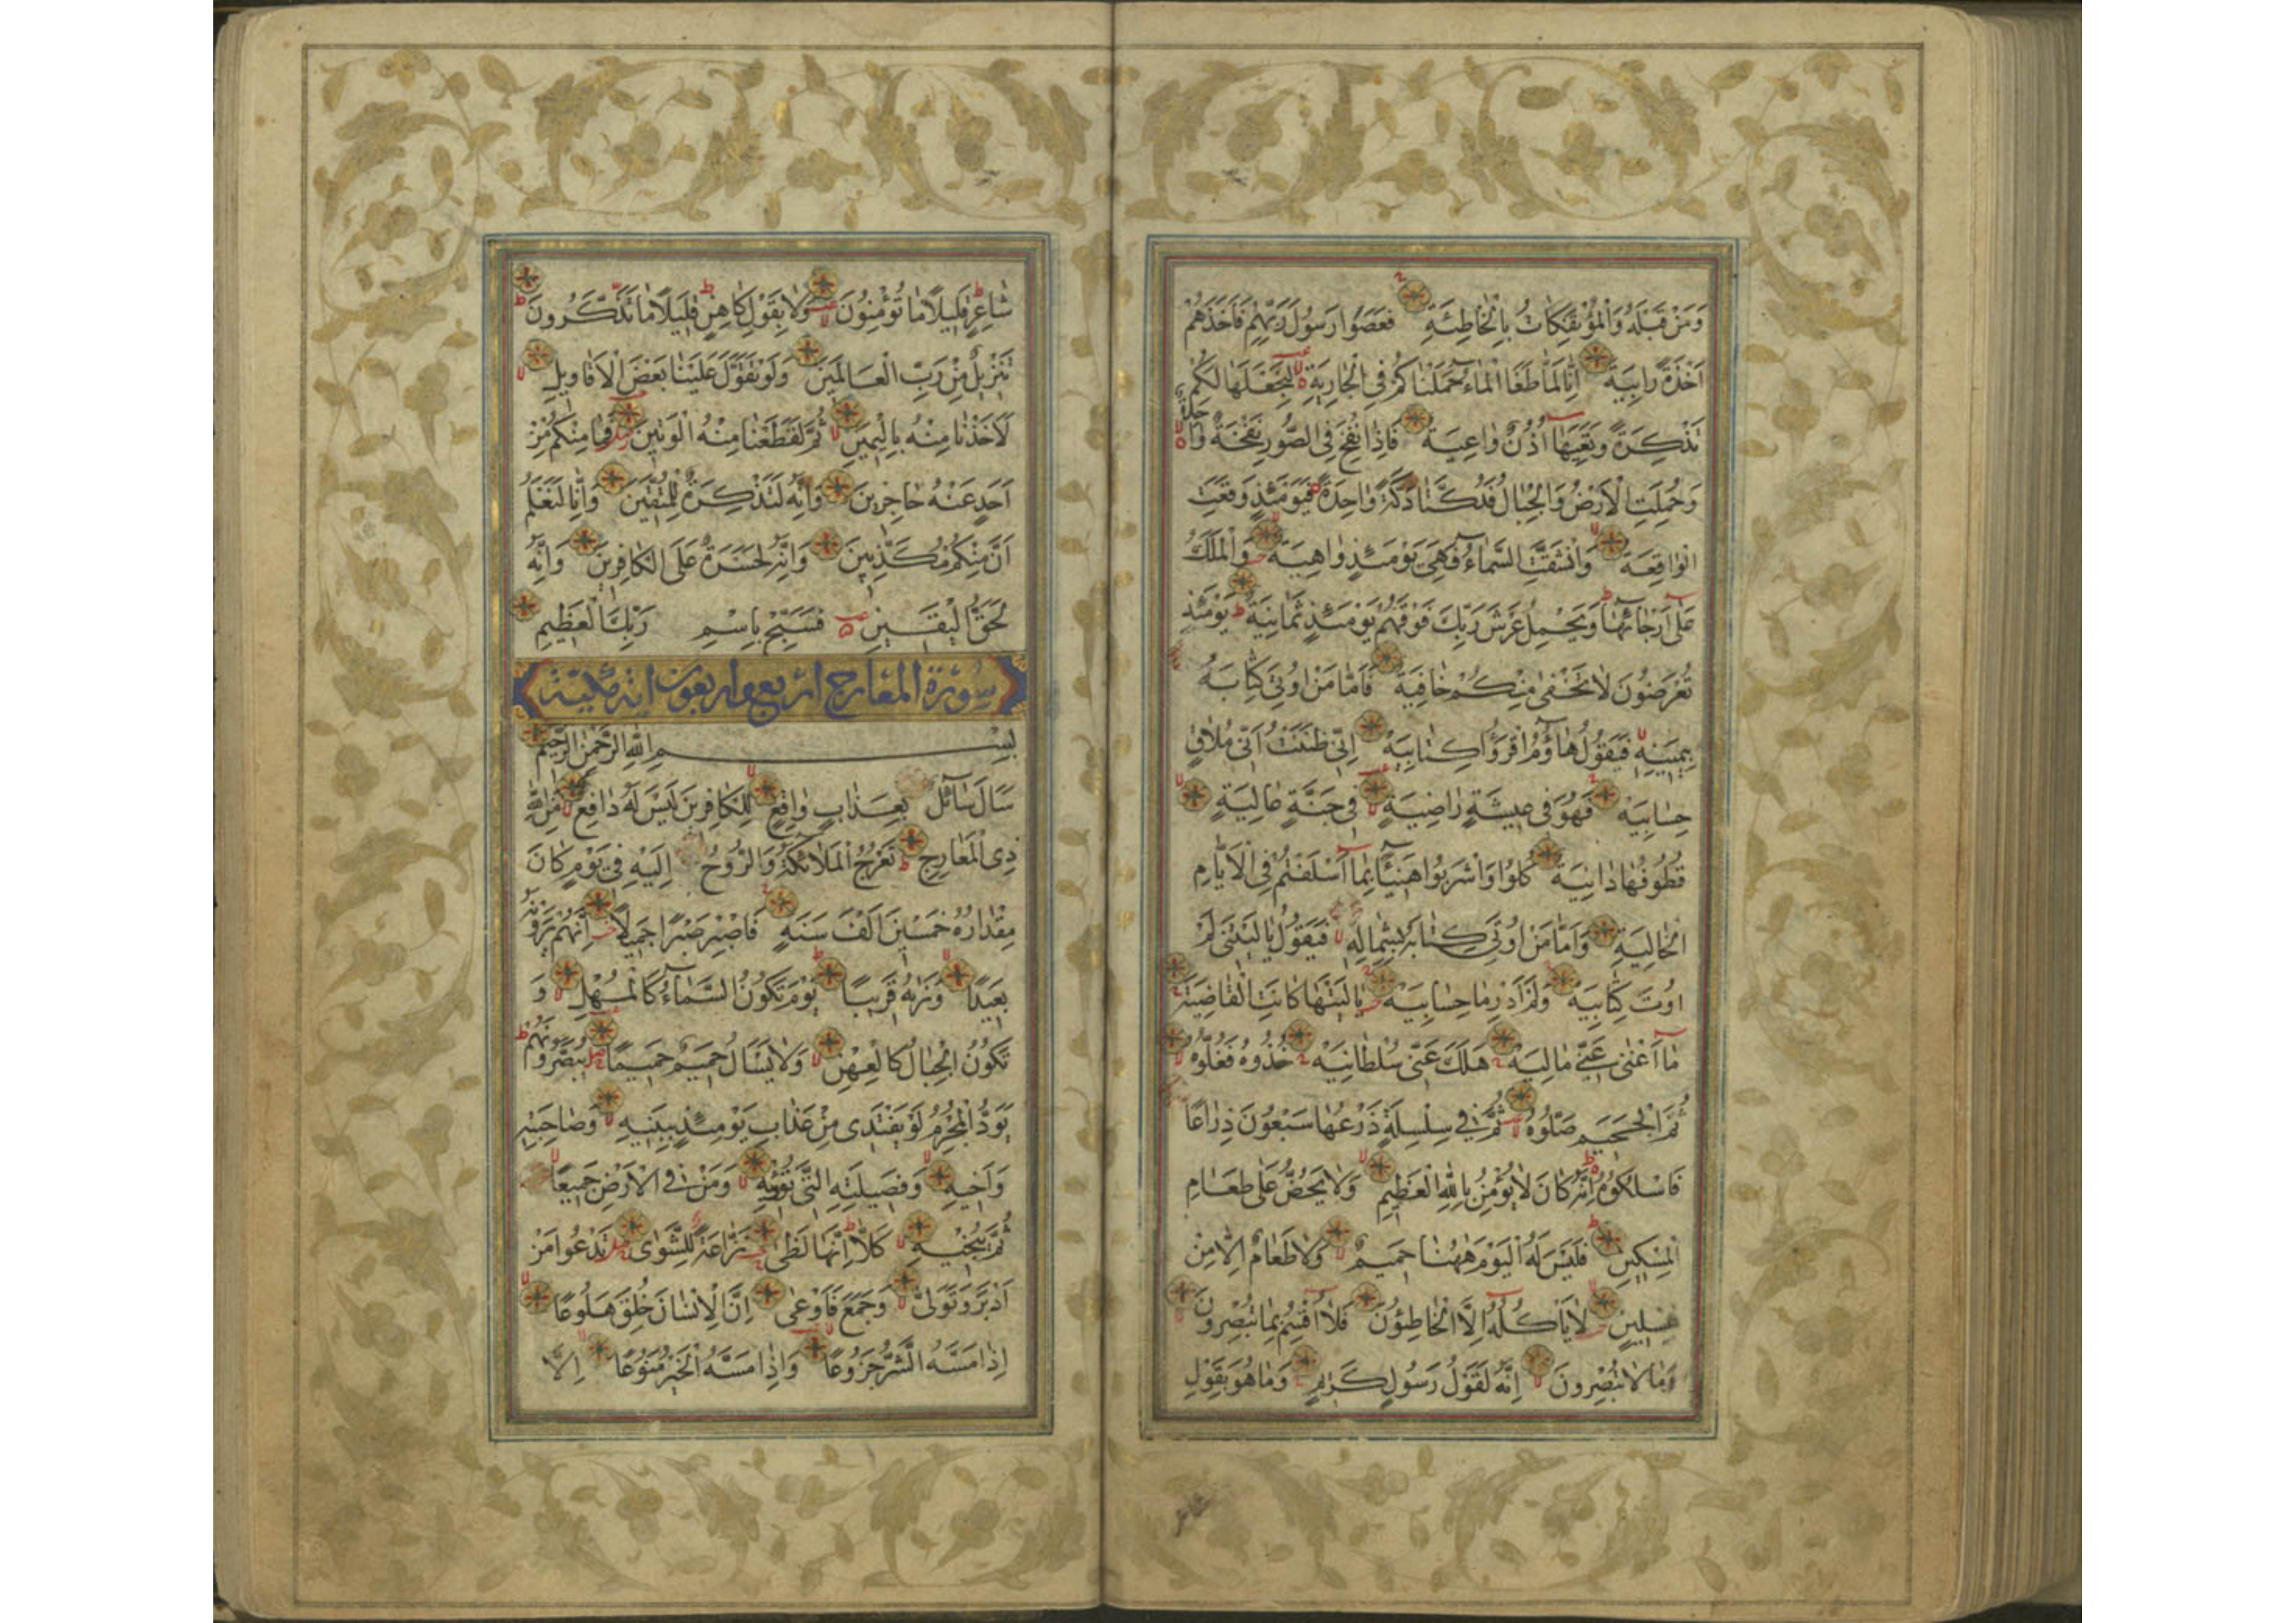 وَمَنْ قَبْلَهُ وَالْمُؤْتَفِكَاتُ بِالْخَاطِئَةِ فَعَصَوْا رَسُولَ رَبِّهِمْ فَاَخَذَهُمْ
اَخْذَةً رَابِيَةً اِنَّا لَمَّا طَغَا الْمَاءُ حَمَلْنَاكُمْ فِي الْجَارِيَةِ لِنَجْعَلَهَا لَكُمْ
تَذْكِرَةً وَتَعِيَهَا اُذُنٌ وَاعِيَةٌ فَاِذَا نُفِخَ فِي الصُّورِ نَفْخَةٌ وَاحِدَةٌ
وَحُمِلَتِ الْاَرْضُ وَالْجِبَالُ فَدُكَّتَا دَكَّةً وَاحِدَةً فَيَوْمَئِذٍ وَقَعَتِ
الْوَاقِعَةُ وَانْشَقَّتِ السَّمَاءُ فَهِيَ يَوْمَئِذٍ وَاهِيَةٌ وَالْمَلَكُ
عَلَى اَرْجَائِهَا وَيَحْمِلُ عَرْشَ رَبِّكَ فَوْقَهُمْ يَوْمَئِذٍ ثَمَانِيَةٌ يَوْمَئِذٍ
تُعْرَضُونَ لَا تَخْفَى مِنْكُمْ خَافِيَةٌ فَاَمَّا مَنْ اُوتِيَ كِتَابَهُ
بِيَمِينِهِ فَيَقُولُ هَاؤُمُ اقْرَؤُا كِتَابِيَهْ اِنِّي ظَنَنْتُ اَنِّي مُلَاقٍ
حِسَابِيَهْ فَهُوَ فِي عِيشَةٍ رَاضِيَةٍ فِي جَنَّةٍ عَالِيَةٍ
قُطُوفُهَا دَانِيَةٌ كُلُوا وَاشْرَبُوا هَنِيئًا بِمَا اَسْلَفْتُمْ فِي الْاَيَّامِ
الْخَالِيَةِ وَاَمَّا مَنْ اُوتِيَ كِتَابَهُ بِشِمَالِهِ فَيَقُولُ يَا لَيْتَنِي لَمْ
اُوتَ كِتَابِيَهْ وَلَمْ اَدْرِ مَا حِسَابِيَهْ يَا لَيْتَهَا كَانَتِ الْقَاضِيَةَ
مَا اَغْنَى عَنِّي مَالِيَهْ هَلَكَ عَنِّي سُلْطَانِيَهْ خُذُوهُ فَغُلُّوهُ
ثُمَّ الْجَحِيمَ صَلُّوهُ ثُمَّ فِي سِلْسِلَةٍ ذَرْعُهَا سَبْعُونَ ذِرَاعًا
فَاسْلُكُوهُ اِنَّهُ كَانَ لَا يُؤْمِنُ بِاللّٰهِ الْعَظِيمِ وَلَا يَحُضُّ عَلَى طَعَامِ
الْمِسْكِينِ فَلَيْسَ لَهُ الْيَوْمَ هٰهُنَا حَمِيمٌ وَلَا طَعَامٌ اِلَّا مِنْ
غِسْلِينٍ لَا يَاْكُلُهُ اِلَّا الْخَاطِئُونَ فَلَا اُقْسِمُ بِمَا تُبْصِرُونَ
وَمَا لَا تُبْصِرُونَ اِنَّهُ لَقَوْلُ رَسُولٍ كَرِيمٍ وَمَا هُوَ بِقَوْلِ
شاعر
شَاعِرٍ قَلِيلًا مَا تُؤْمِنُونَ وَلَا بِقَوْلِ كَاهِنٍ قَلِيلًا مَا تَذَكَّرُونَ
تَنْزِيلٌ مِنْ رَبِّ الْعَالَمِينَ وَلَوْ تَقَوَّلَ عَلَيْنَا بَعْضَ الْاَقَاوِيلِ
لَاَخَذْنَا مِنْهُ بِالْيَمِينِ ثُمَّ لَقَطَعْنَا مِنْهُ الْوَتِينَ فَمَا مِنْكُمْ مِنْ
اَحَدٍ عَنْهُ حَاجِزِينَ وَاِنَّهُ لَتَذْكِرَةٌ لِلْمُتَّقِينَ وَاِنَّا لَنَعْلَمُ
اَنَّ مِنْكُمْ مُكَذِّبِينَ وَاِنَّهُ لَحَسْرَةٌ عَلَى الْكَافِرِينَ وَاِنَّهُ
لَحَقُّ الْيَقِينِ فَسَبِّحْ بِاسْمِ رَبِّكَ الْعَظِيمِ
سورة المعارج اربع واربعون اية مكية
بِسْمِ اللّٰهِ الرَّحْمٰنِ الرَّحِيمِ
سَاَلَ سَائِلٌ بِعَذَابٍ وَاقِعٍ لِلْكَافِرِينَ لَيْسَ لَهُ دَافِعٌ مِنَ اللّٰهِ
ذِي الْمَعَارِجِ تَعْرُجُ الْمَلَائِكَةُ وَالرُّوحُ اِلَيْهِ فِي يَوْمٍ كَانَ
مِقْدَارُهُ خَمْسِينَ اَلْفَ سَنَةٍ فَاصْبِرْ صَبْرًا جَمِيلًا اِنَّهُمْ يَرَوْنَهُ
بَعِيدًا وَنَرَاهُ قَرِيبًا يَوْمَ تَكُونُ السَّمَاءُ كَالْمُهْلِ وَ
تَكُونُ الْجِبَالُ كَالْعِهْنِ وَلَا يَسْاَلُ حَمِيمٌ حَمِيمًا يُبَصَّرُونَهُمْ
يَوَدُّ الْمُجْرِمُ لَوْ يَفْتَدِي مِنْ عَذَابِ يَوْمِئِذٍ بِبَنِيهِ وَصَاحِبَتِهِ
وَاَخِيهِ وَفَصِيلَتِهِ الَّتِي تُؤْوِيهِ وَمَنْ فِي الْاَرْضِ جَمِيعًا
ثُمَّ يُنْجِيهِ كَلَّا اِنَّهَا لَظَى نَزَّاعَةً لِلشَّوَى تَدْعُوا مَنْ
اَدْبَرَ وَتَوَلَّى وَجَمَعَ فَاَوْعَى اِنَّ الْاِنْسَانَ خُلِقَ هَلُوعًا
اِذَا مَسَّهُ الشَّرُّ جَزُوعًا وَاِذَا مَسَّهُ الْخَيْرُ مَنُوعًا اِلَّا